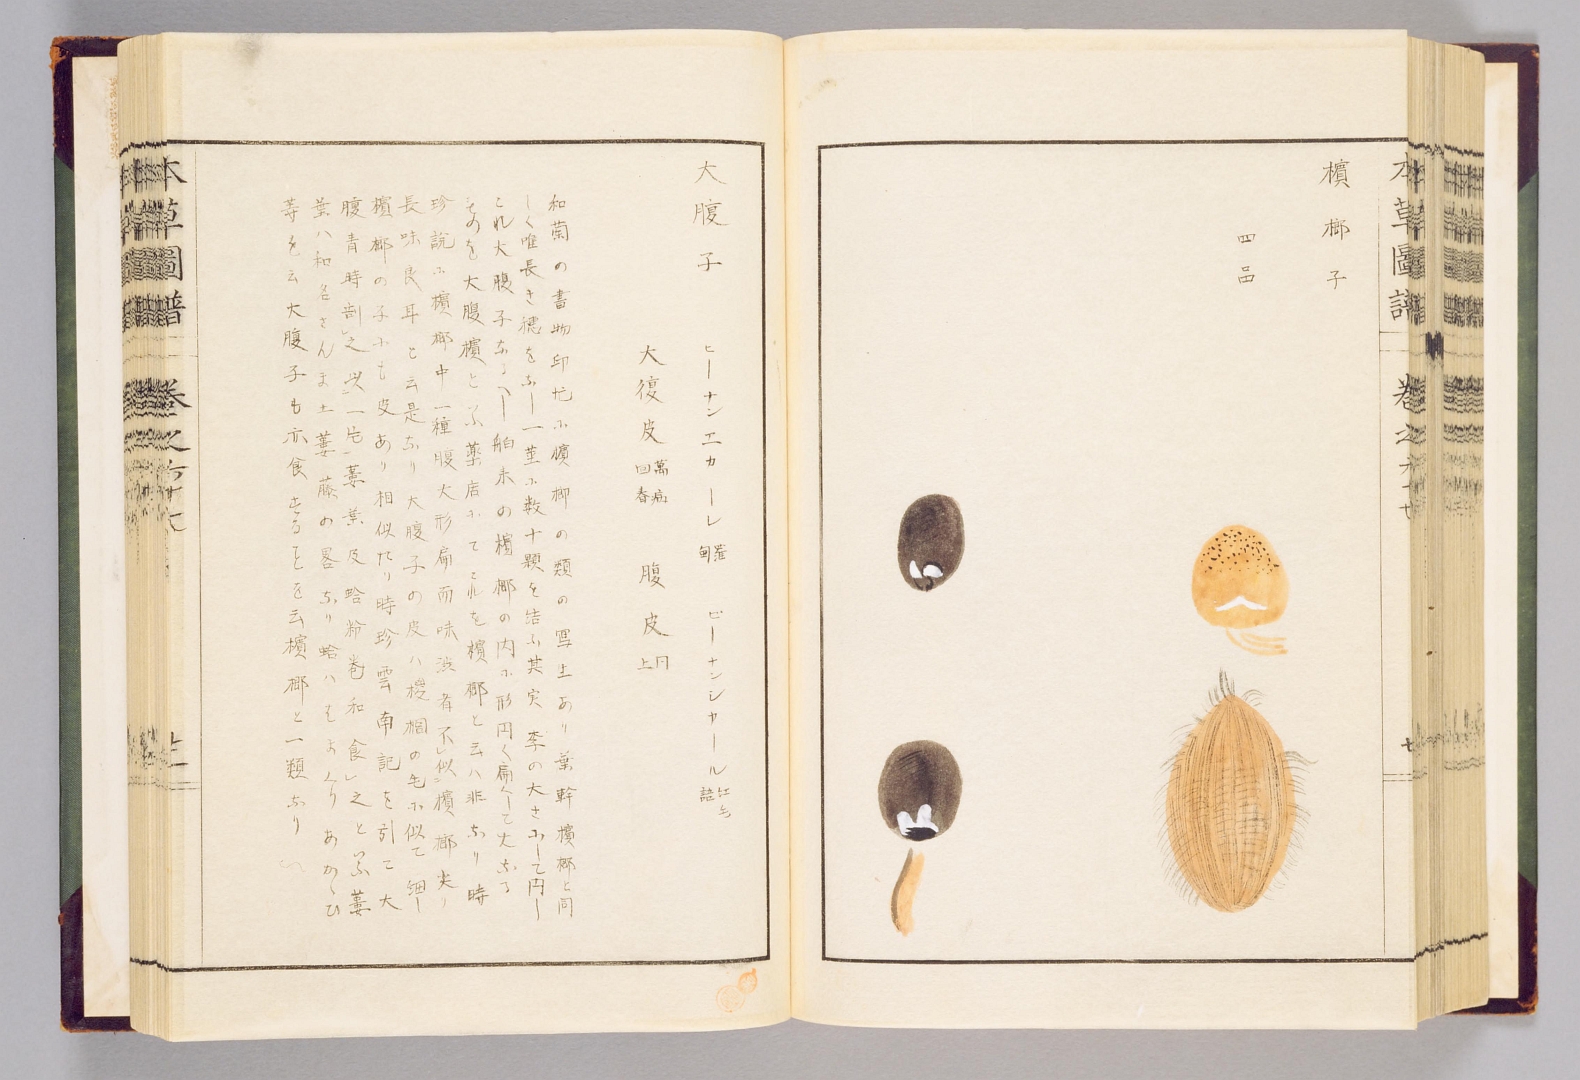 本草圖譜 巻之六十七 七
檳榔子
四品
大腹子 ヒーナンエカーレ 羅甸 ピーナンシャール 紅毛語
大復皮 萬病回春 腹皮 同上
和蘭の書物印忙ニ檳榔の類の写生あり葉幹檳榔と同
しく唯長き穂をなし一莖ニ数十顆を結ふ其実李の大さニして円し
これ大腹子なるへし舶来の檳榔の内ニ形円く扁くして大なる
ものを大腹檳といふ薬店ニてこれを檳榔と云ハ非なり時
珍説ニ檳榔中一種腹大形扁而味渋者不似檳榔尖
長味良耳と云是なり大腹子の皮ハ椶櫚の毛ニ似て細し
檳榔の子ニも皮あり相似たり時珍雲南記を引て大
腹青時剖之以一片蔞葉及蛤粉巻和食之といふ蔞
葉ハ和名きんま土蔞藤の畧なり蛤ハ
等を云大腹子も亦食するを云檳榔と一類なり
本草圖譜 巻之六十七